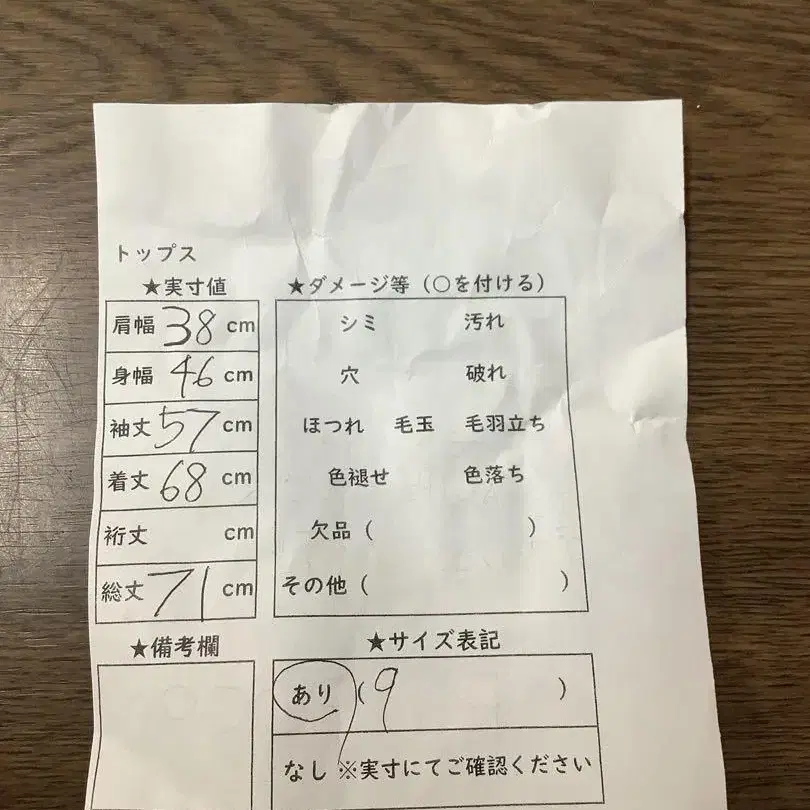 トップス
★実寸値
肩幅 38 cm
身幅 46 cm
袖丈 57 cm
着丈 68 cm
裄丈 cm
総丈 71 cm
★ダメージ等（○を付ける）
シミ 汚れ
穴 破れ
ほつれ 毛玉 毛羽立ち
色褪せ 色落ち
欠品（ ）
その他（ ）
★備考欄
★サイズ表記
あり（9 ）
なし ※実寸にてご確認ください